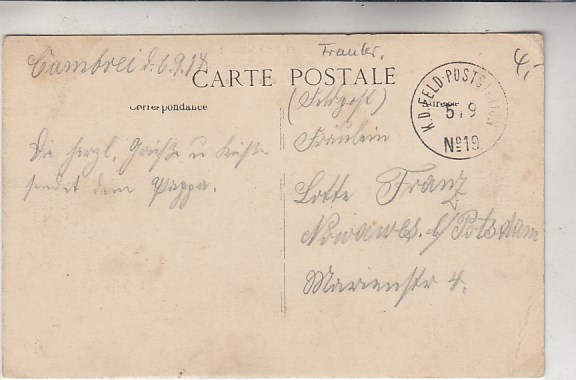 Cambrai d. 6.9.17
Frankr.
4,-
CARTE POSTALE
Correspondance
Adresse
K.D. FELD-POSTSTATION
5/9
No 19
(Feldpost)
Fräulein
Lotte Franz
Nowawes b/Potsdam
Marienstr 4.
Die herzl. Grüße u Küsse
sendet dein Pappa.